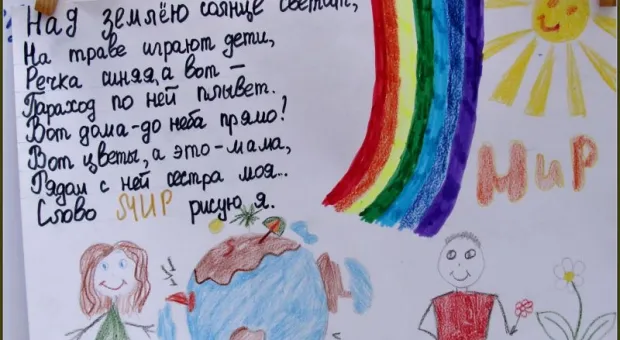 Над землёю солнце светит,
На траве играют дети,
Речка синяя, а вот –
Параход по ней плывет.
Вот дома-до неба прямо!
Вот цветы, а это-мама,
Рядам с ней сестра моя...
Слово МИР рисую я.
МИР